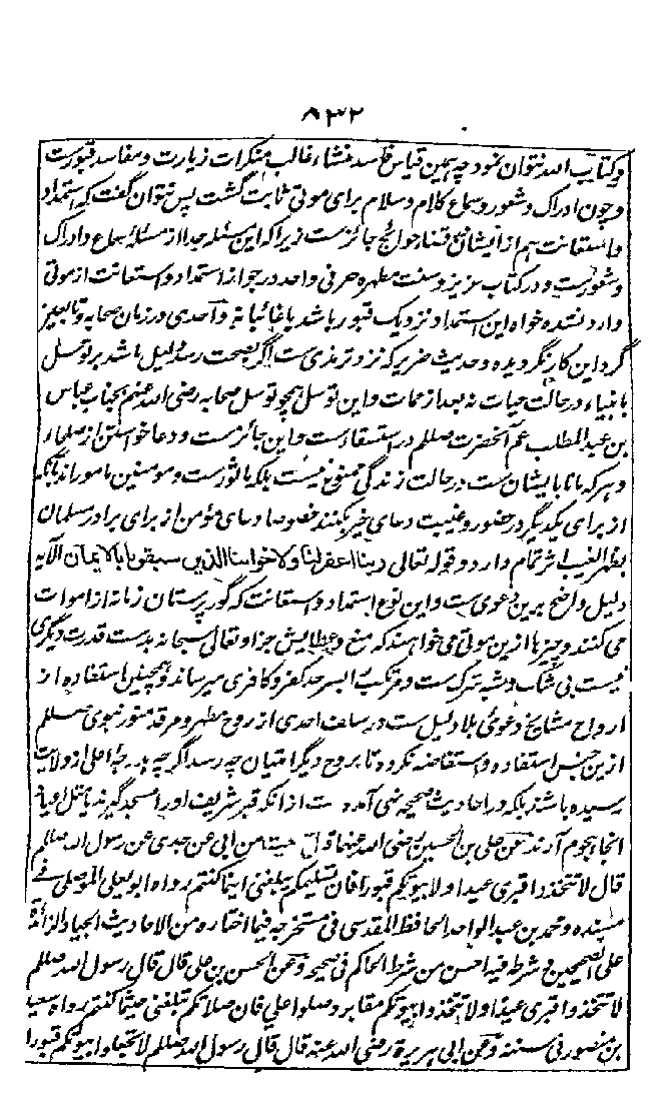 ۸۳۲
و کتاب الله نتوان نمود چه همین قیاس فاسد منشاء غالب منکرات زیارت و مفاسد قبورست
و چون ادراک و شعور و سماع کلام و سلام برای موتی ثابت گشت پس نتوان گفت که استمداد
و استعانت هم از ایشان و قضا حوائج جائزست زیرا که این مسئله جدا از مسئله سماع و ادراک
و شعورست و در کتاب عزیز و سنت مطهره حرفی واحد در جواز استمداد و استعانت از موتی
وارد نشده خواه این استمداد نزدیک قبور باشد یا غائبانه و احدی در زمان صحابه و تابعین
گرد این کار نگردیده و حدیث ضریر که نزد ترمذی ست اگر بصحت رسد دلیل باشد بر توسل
بانبیاء در حالت حیات نه بعد از ممات و این توسل همچو توسل صحابه رضی الله عنهم بجناب عباس
بن عبدالمطلب عم آنحضرت صللم در استسقاءست و این جائزست و دعا خواستن از صلحاء
و هر که مانا بایشان ست در حالت زندگی ممنوع نیست بلکه ماثورست و مومنین مامور اند بآنکه
از برای یکدیگر در حضور و غیبت دعای خیر بکنند خصوصا دعای مؤمن از برای برادر مسلمان
بظهر الغیب اثر تمام دارد و قوله تعالی ربنا اغفر لنا ولاخواننا الذین سبقونا بالایمان الآیه
دلیل واضح برین دعوی ست و این نوع استمداد و استعانت که گورپرستان زمانه از اموات
می کنند و چیزها ازین موتی می خواهند که منع و عطایش جز او تعالی سبحانه بدست قدرت دیگری
نیست بی شک و شبه شرک ست و مرتکب را بسرحد کفر و کافری میرساند و همچنین استفاده از
ارواح مشایخ دعوی بلا دلیل ست در سلف احدی از روح مطهر و مرقد منور نبوی صللم
ازین جنس استفاده و استفاضه نکرده تا بروح دیگر امتیان چه رسد اگر چه بدرجه اعلی از ولایت
رسیده باشند بلکه در احادیث صحیحه نهی آمده ست از آنکه قبر شریف او را مسجد گیرند یا
انجا هجوم آرند عن علی بن الحسین رضی الله عنهما قال من ابی عن جدی عن رسول الله صللم
قال لا تتخذوا قبری عیدا ولا بیوتکم قبورا فان تسلیمکم یبلغنی اینما کنتم رواه ابو یعلی الموصلی فی
مسنده و محمد بن عبد الواحد الحافظ المقدسی فی مستخرجه فیما اختاره من الاحادیث الجیاد الزائدة
علی الصحیحین و شرطه فیه احسن من شرط الحاکم فی صحیحه و عن الحسن بن علی قال قال رسول الله صللم
لا تتخذوا قبری عیدا ولا تتخذوا بیوتکم مقابر وصلوا علی فان صلاتکم تبلغنی حیثما کنتم رواه سعید
بن منصور فی سننه و عن ابی هریرة رضی الله عنه قال قال رسول الله صللم لا تجعلوا بیوتکم قبورا